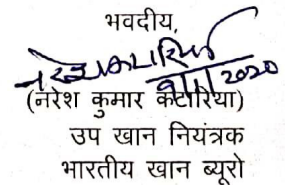 भवदीय,
नरेश कटारिया
9/1/2020
(नरेश कुमार कटारिया)
उप खान नियंत्रक
भारतीय खान ब्यूरो